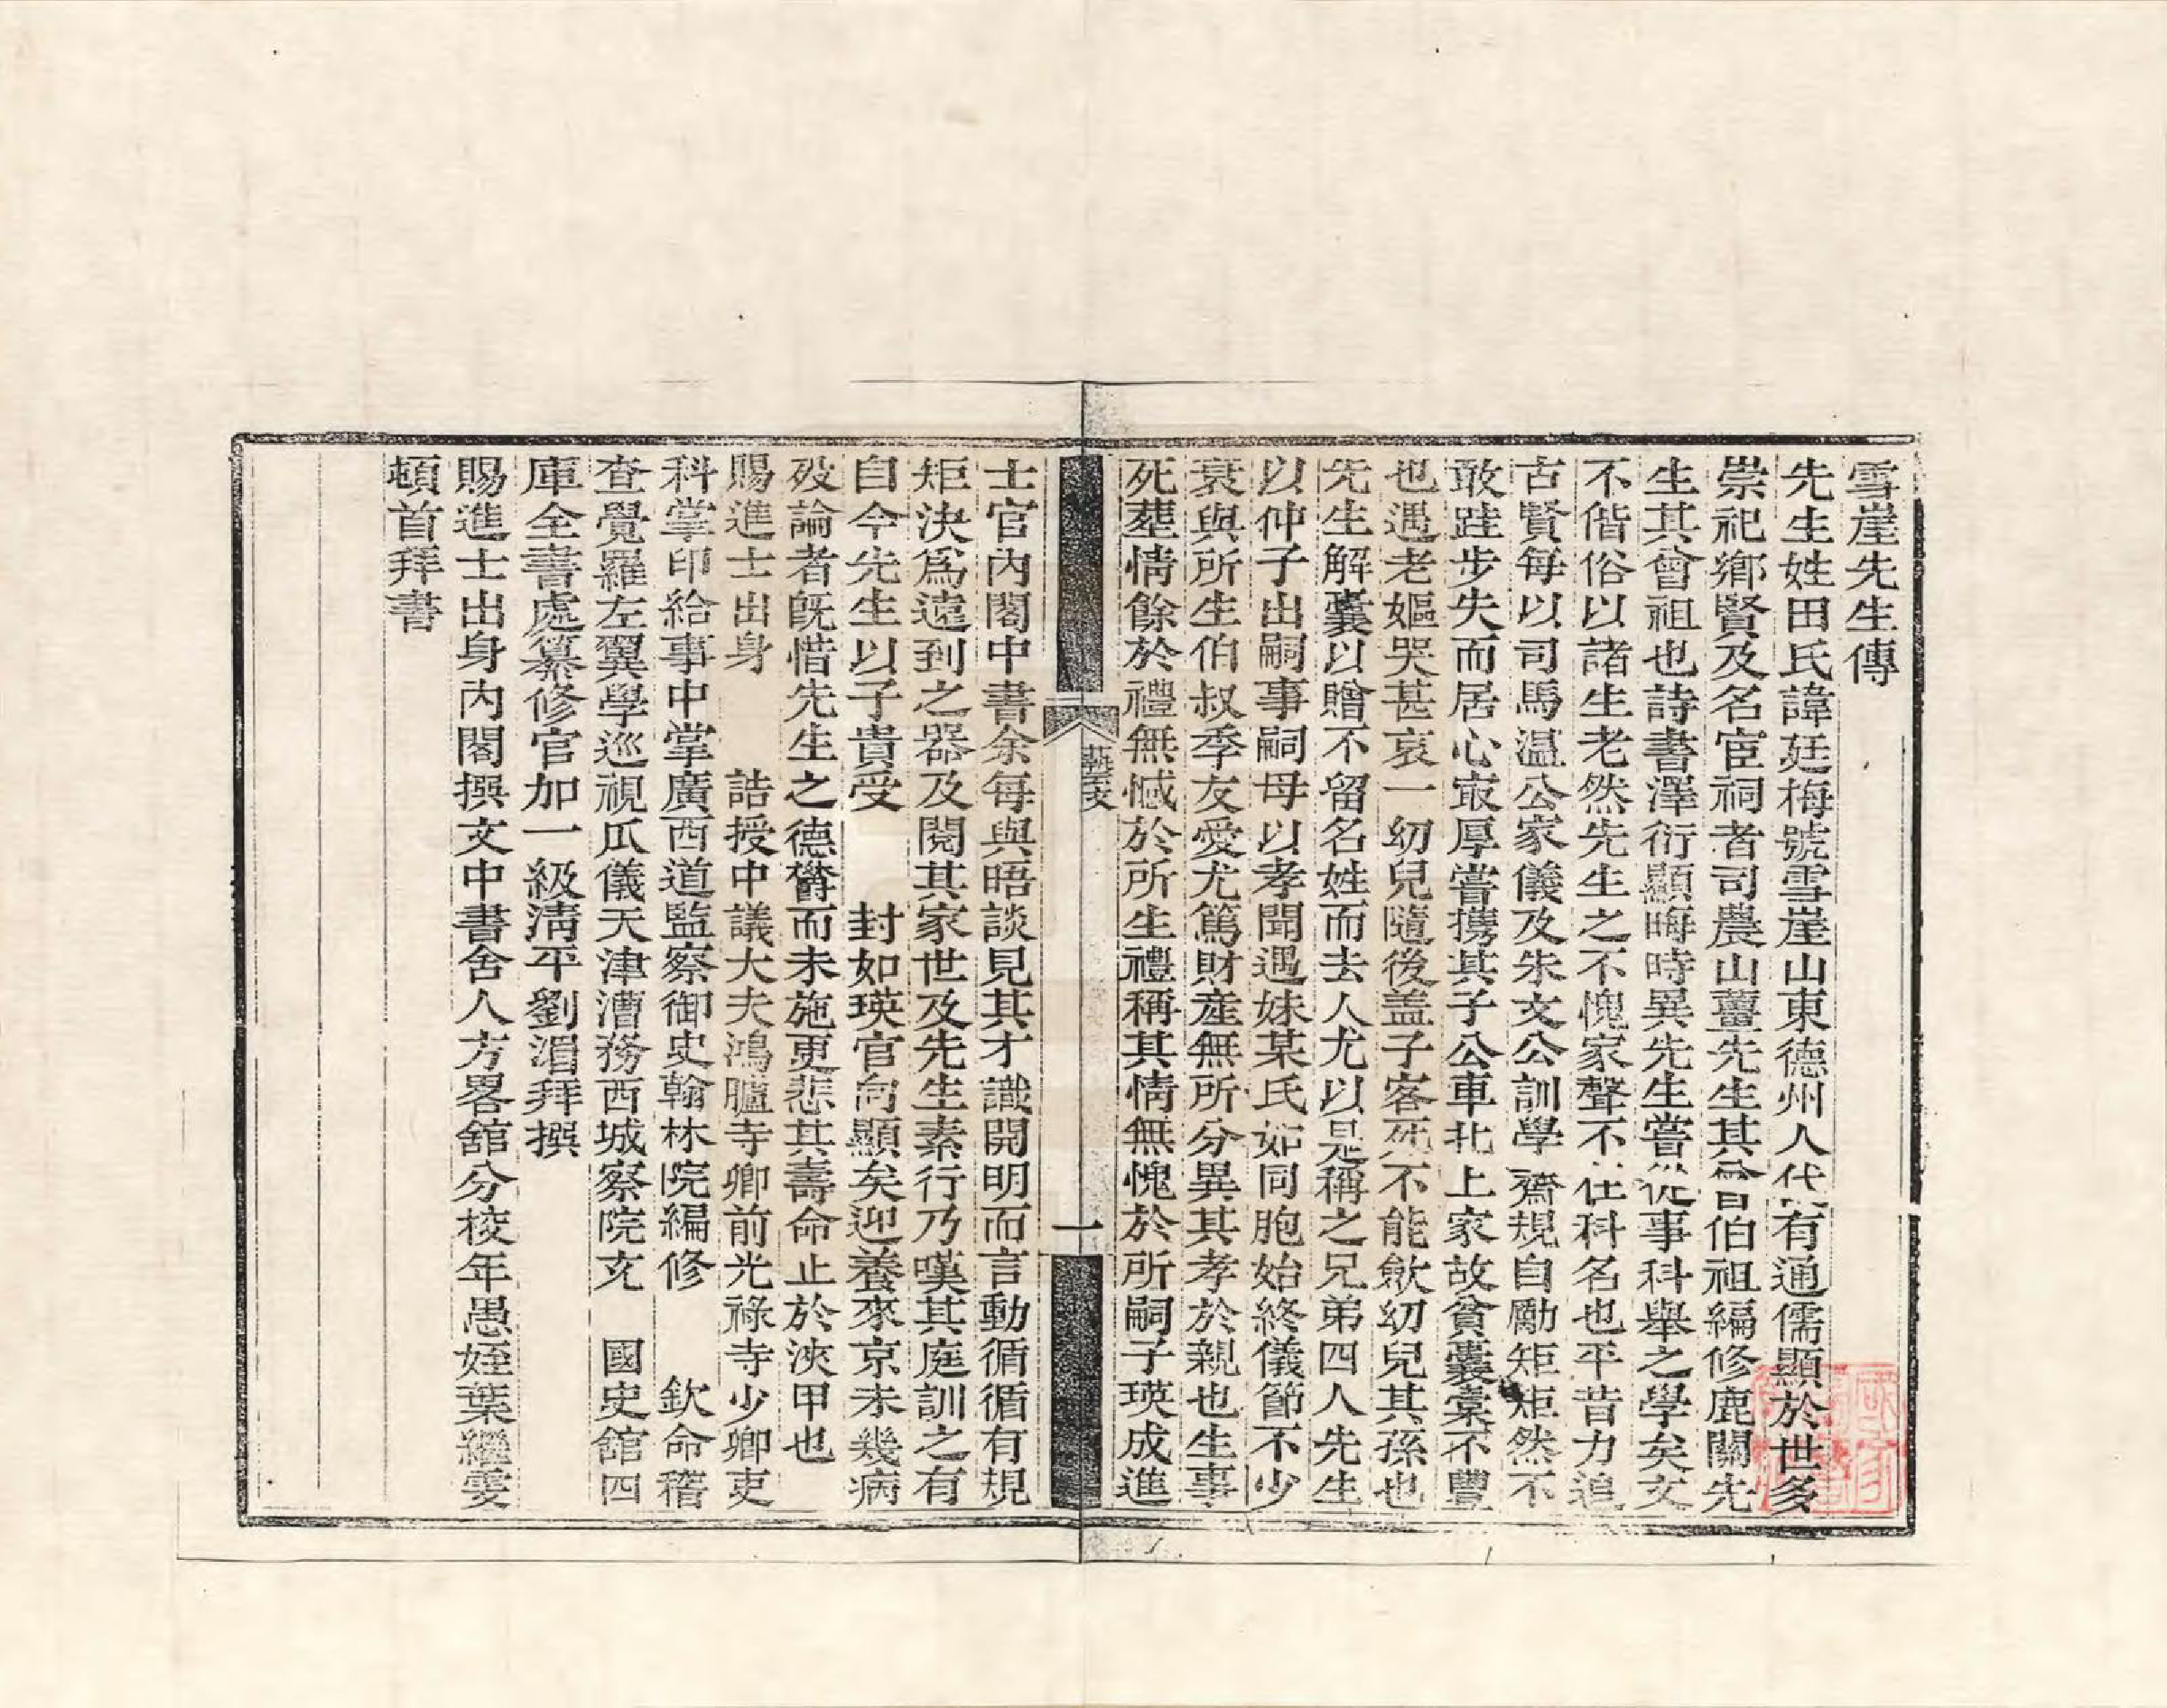 雪崖先生傳
先生姓田氏諱廷梅號雪崖山東德州人代有通儒顯於世多
崇祀鄉賢及名宦祠者司農山薑先生其曾伯祖編修鹿關先
生其曾祖也詩書澤衍顯晦時異先生嘗從事科舉之學矣文
不偕俗以諸生老然先生之不愧家聲不在科名也平昔力追
古賢每以司馬溫公家儀及朱文公訓學齋規自勵矩矩然不
敢跬步失而居心㝡厚嘗攜其子公車北上家故貧囊橐不豐
也遇老嫗哭甚哀一幼兒隨後盖子客死不能歛幼兒其孫也
先生解囊以贈不留名姓而去人尤以是稱之兄弟四人先生
以仲子出嗣事嗣母以孝聞遇妹某氏如同胞始終儀節不少
衰與所生伯叔季友愛尤篤財產無所分異其孝於親也生事
死塟情餘於禮無憾於所生禮稱其情無愧於所嗣子瑛成進
藝文
一
士官內閣中書余每與晤談見其才識開明而言動循循有規
矩決為遠到之器及閱其家世及先生素行乃嘆其庭訓之有
自今先生以子貴受 封如瑛官向顯矣迎養來京未幾病
歿論者旣惜先生之德欎而未施更悲其壽命止於浹甲也
賜進士出身 誥授中議大夫鴻臚寺卿前光祿寺少卿吏
科掌印給事中掌廣西道監察御史翰林院編修 欽命稽
查覺羅左翼學巡視瓜儀天津漕務西城察院充 國史舘四
庫全書處纂修官加一級淸平劉湄拜撰
賜進士出身內閣撰文中書舍人方畧舘分校年愚姪葉繼雯
頓首拜書